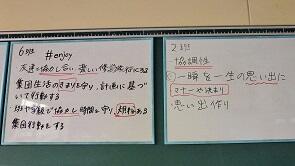 6班
#enjoy
友達と協力し合い、楽しい修学旅行にする
集団生活のきまりを守り、計画に基づ
いて行動する
班や学級で協力し時間を守り、
ある
集団行動をする
2班
協調性
一瞬を一生の思い出に
マナーや決まり
思い出作り